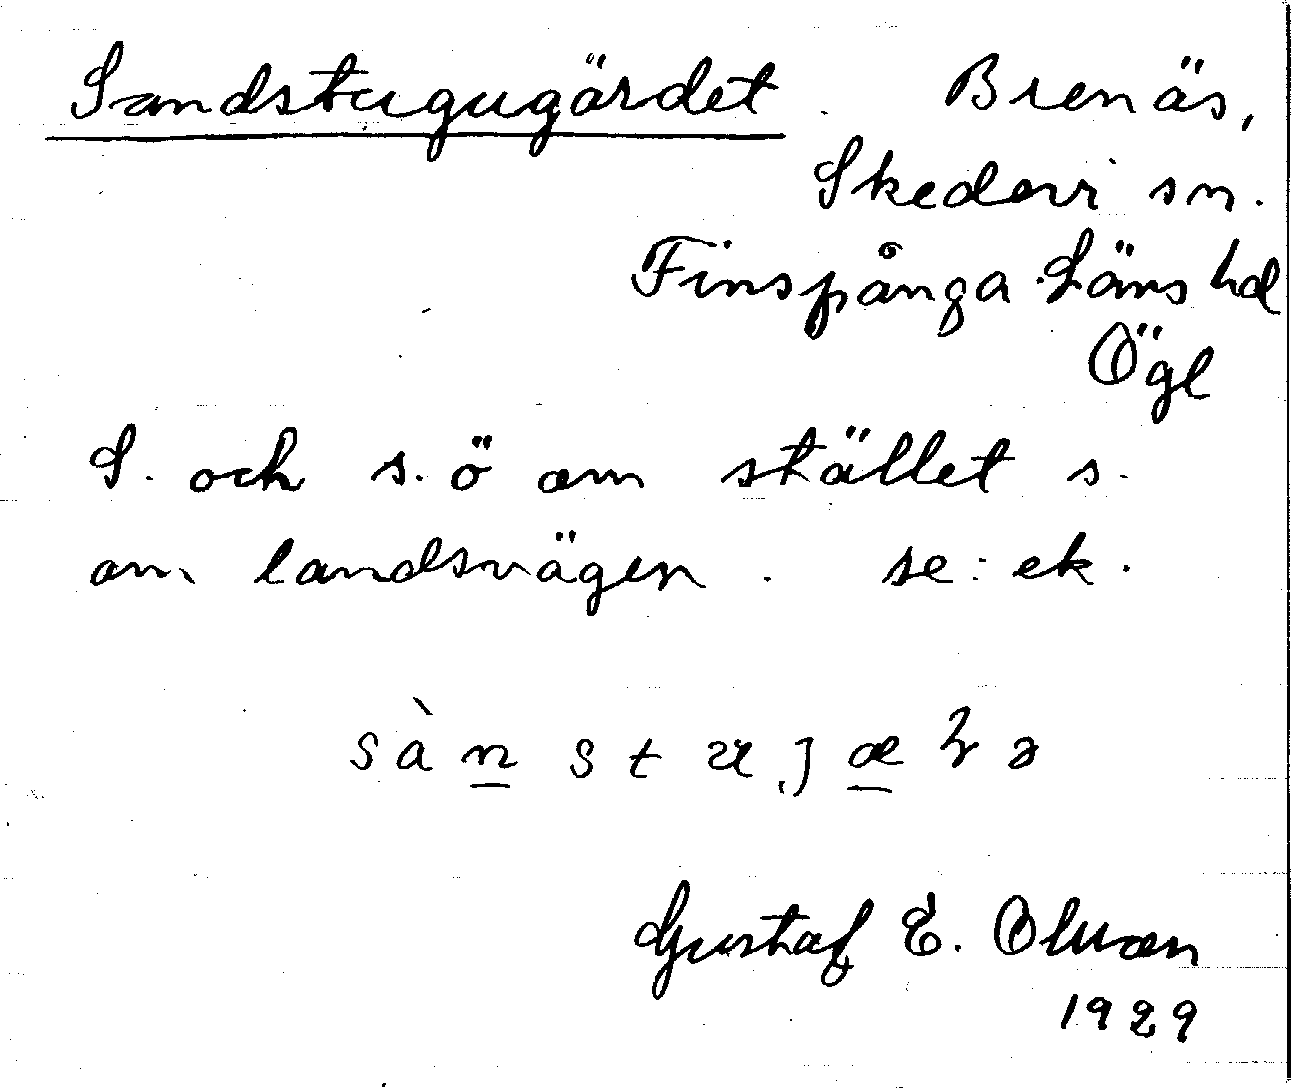 Sandstugugärdet. Brenäs,
Skedevi sn.
Finspånga Läns hd
Ögl
S. och s.ö om stället s.
om landsvägen. se: ek.
Gustaf E. Olsson
1929